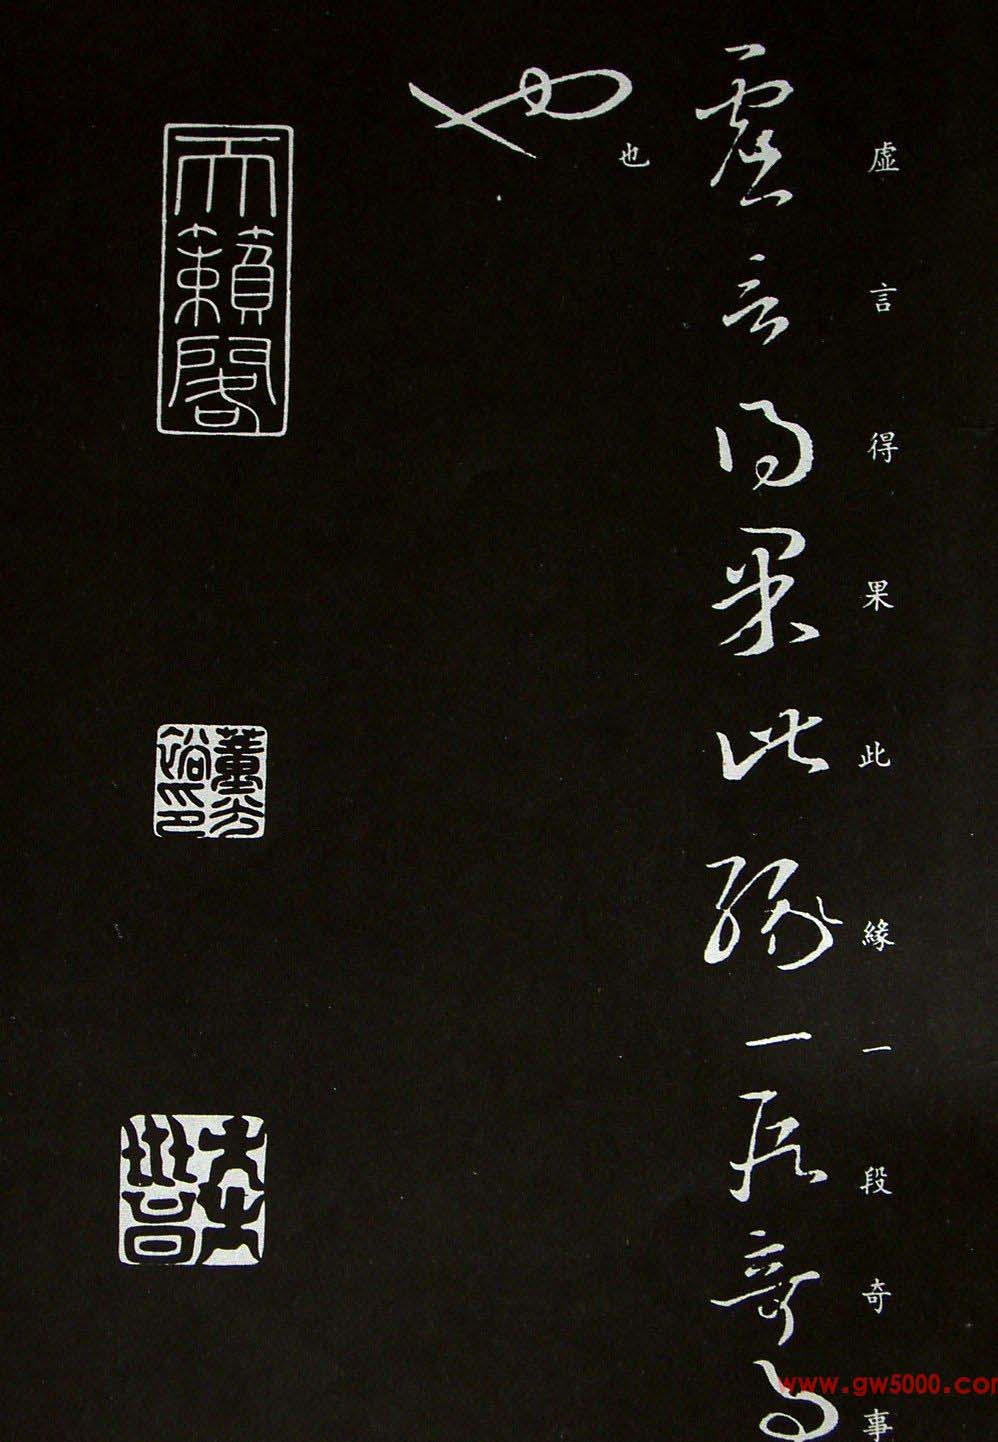 虛言得果此緣一段奇事
虛言得果此緣一段奇事
也
也
天籟閣
www.gw5000.com